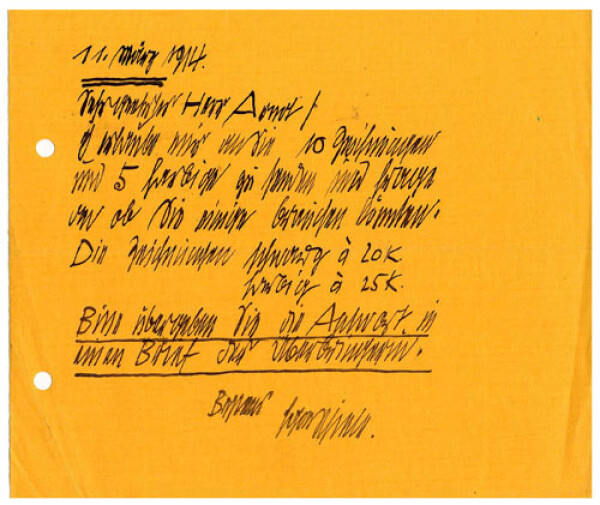 11. März 1914.
Sehr geehrter Herr Arnot!
Ich erlaube mir an Sie 10 Zeichnungen
und 5 farbige zu senden und frage
an ob Sie einige brauchen könnten.
Die Zeichnungen schwarz à 20 K.
farbig à 25 K.
Bitte übergeben Sie die Antwort in
einen Brief der Überbringerin.
Bestens Egon Schiele.